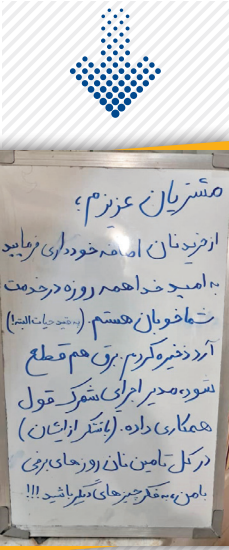 مشتریان عزیزم؛
از خرید نان اضافه خودداری فرمایید
به امید خدا همه روزه در خدمت
شما خوبان هستم. (به قید حیات البته!)
آرد ذخیره کردم. برق هم قطع
شود، مدیر اجرایی شهرک قول
همکاری داده. (با تشکر از ایشان)
در کل تامین نان روزهای برفی
با من، به فکر چیزهای دیگر باشید!!!